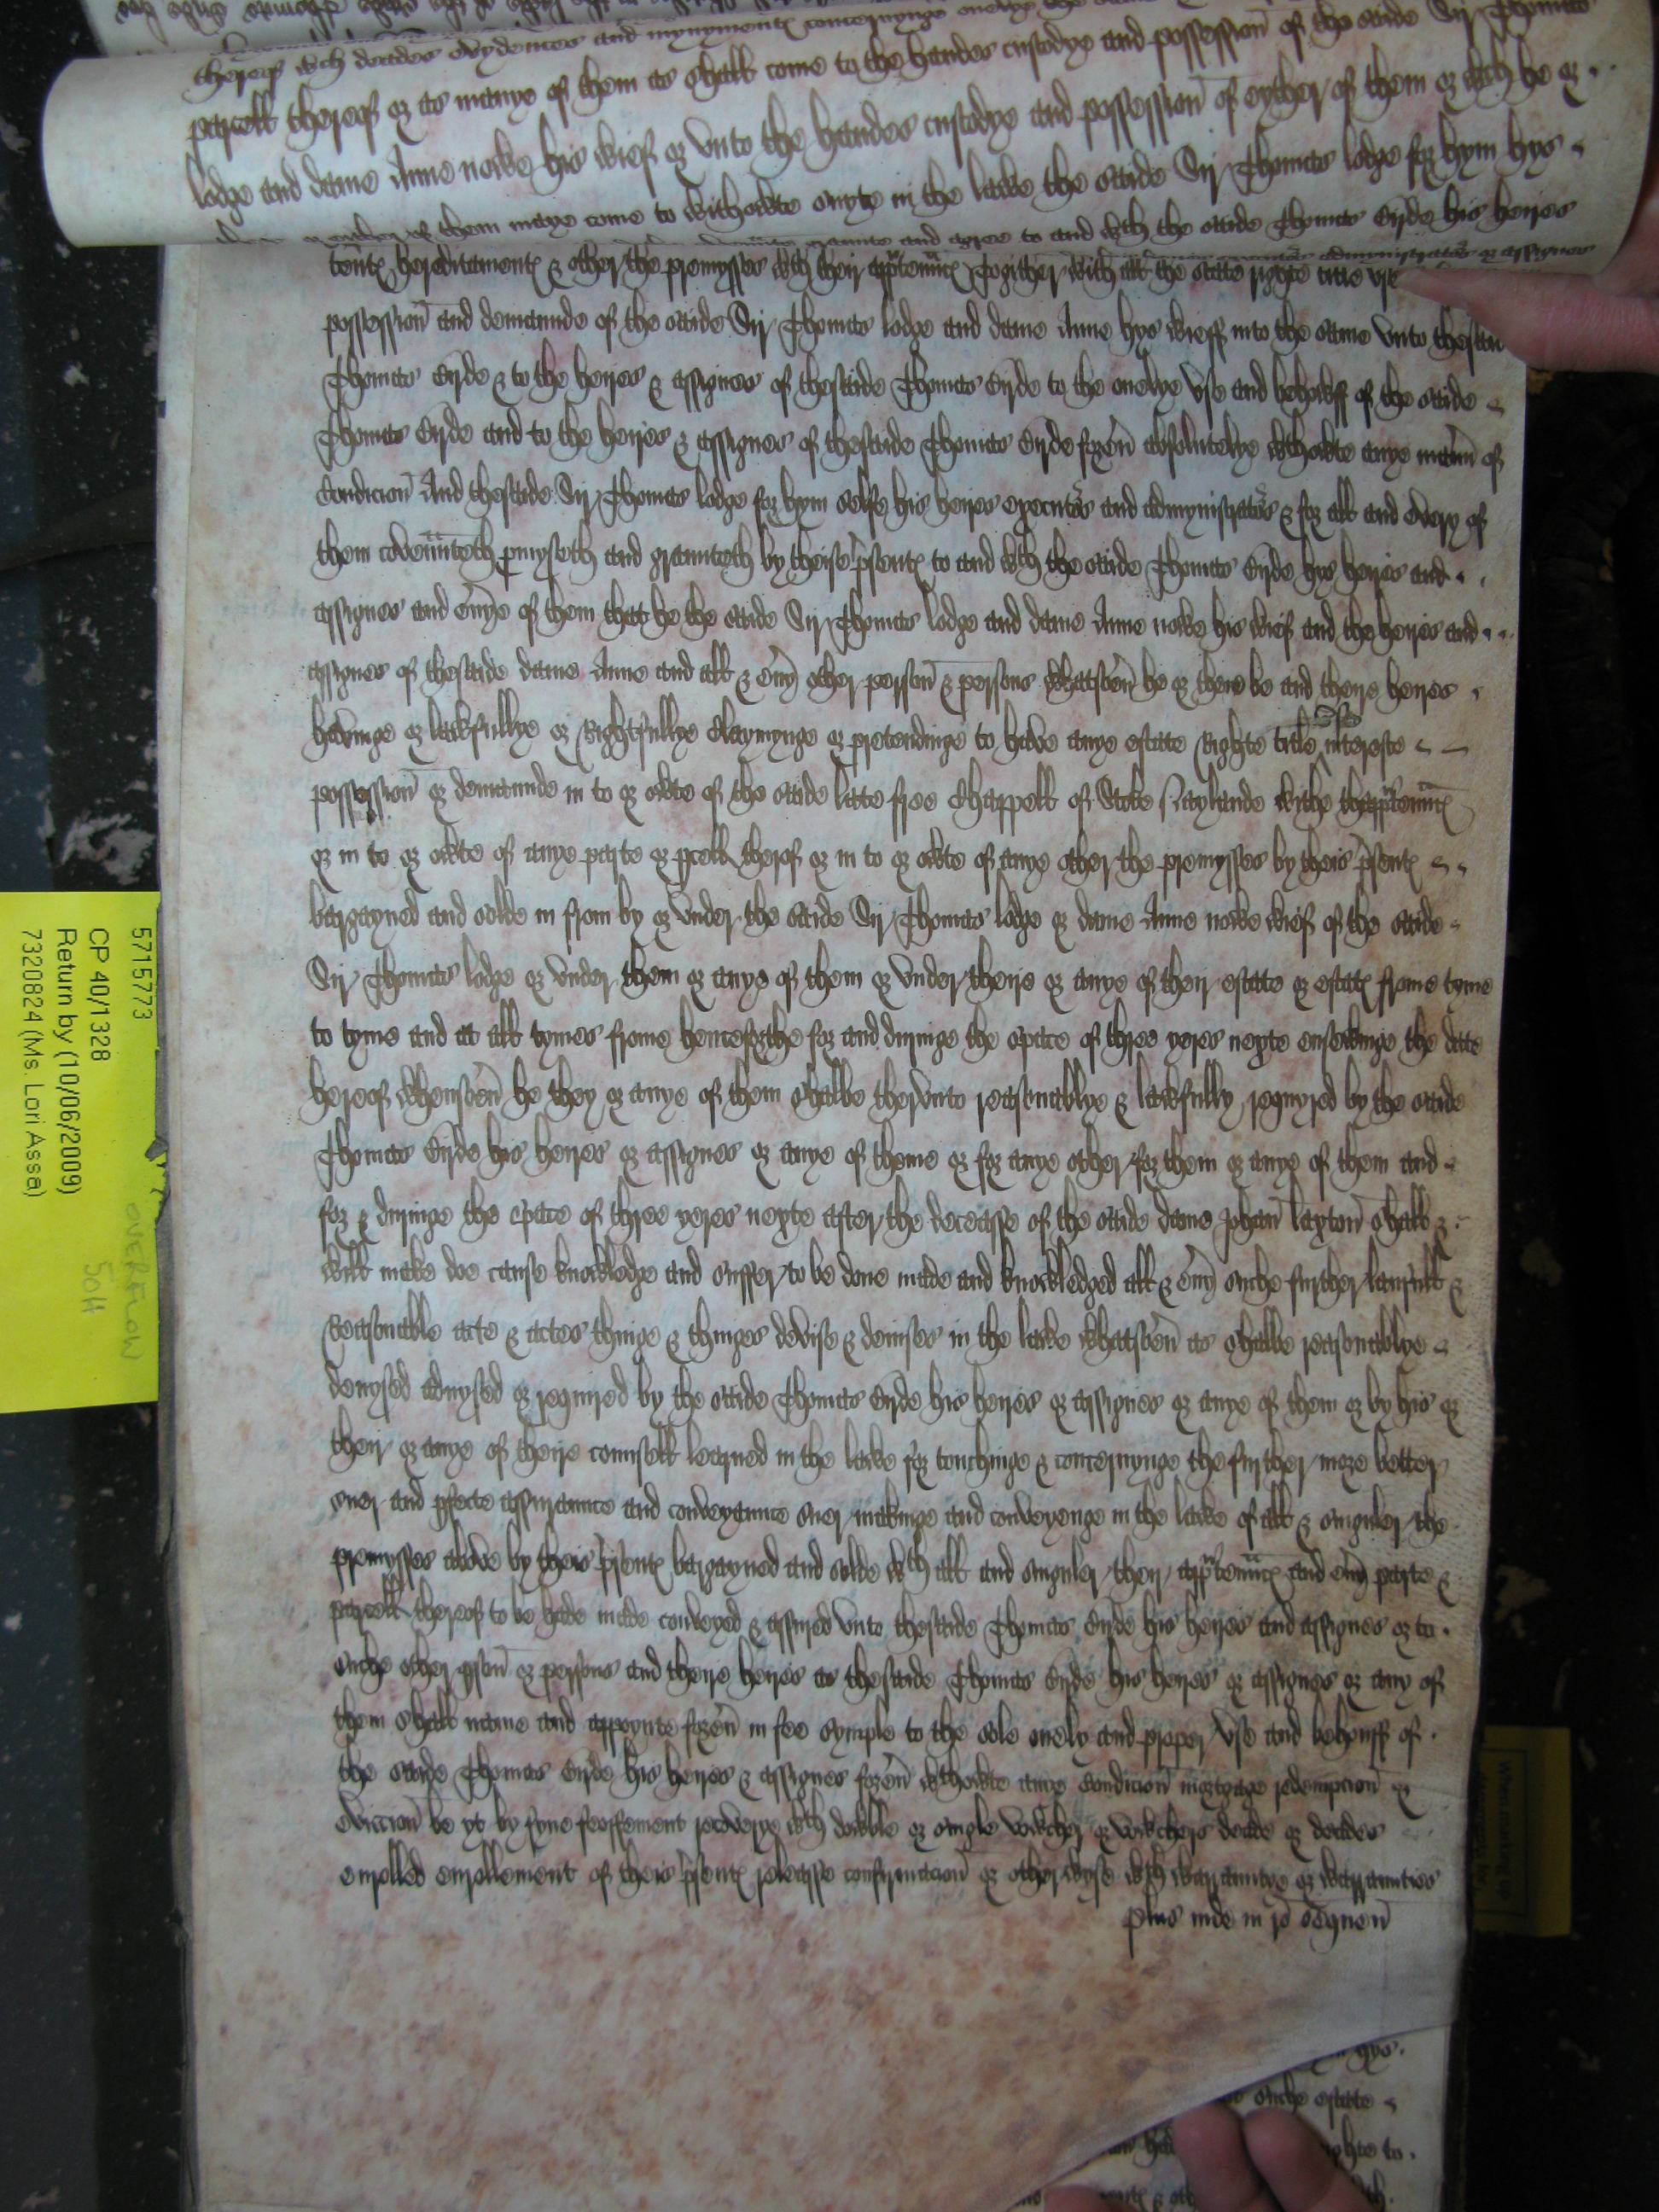 therof wch deades evydences and mynyment concernynge onelye the same
parcell therof or as manye of them as shall come to the handes custodye and possession of the saide Sir Thomas
lodge and dame Anne nowe his wief or unto the handes custodye and possession of eyther of them or wch he or
of them maye come to withowte suyte in the lawe the saide Sir Thomas lodge for hym hys
graunte and agree to and wth the saide Thomas Eirde his heires
administrators & assignes
tent hereditament & other the premysses wth their apptenn togither with all the state righte title use
possession and demaunde of the saide Sir Thomas lodge and dame Anne hys wieff into the same unto thesaid
Thomas Eirde & to the heires & assignes of thesaide Thomas Eirde to the onelye use and behowff of the saide
Thomas Eirde and to the heires & assignes of thesaide Thomas Eirde forev absolutelye wthowte anye man of
Condicion And thesaide Sir Thomas lodge for hym selfe his heires executors and admynistrators & for all and every of
them covenanteth pmyseth and graunteth by theise psent to and wth the saide Thomas Eirde hys heires and
assignes and evye of them that he the saide Sir Thomas lodge and dame Anne nowe his wief and the heires and
assignes of thesaide dame Anne and all & evy other person & persons whatsoev he or they be and theire heires
havinge or lawfullye or Rightfullye Claymynge or pretendinge to have anye estate Righte title use intereste
possession or demaunde in to or owte of the saide late free Chappell of Stoke Naylande withe thapptenn
or in to or owte of anye parte or pcell therof or in to or owte of anye other the premysses by theis psent
bargayned and solde in from by or under the saide Sir Thomas lodge or dame Anne nowe wief of the saide
Sir Thomas lodge or under them or anye of them or under theire or anye of their estate or estat frome tyme
to tyme and at all tymes frome henceforthe for and duringe the space of three yeres nexte ensewinge the date
hereof whensoev he they or anye of them shalbe therunto reasonablye & lawfully requyred by the saide
Thomas Eirde his heires or assignes or anye of theme or for anye other for them or anye of them and
for & duringe the space of three yeres nexte after the deceasse of the saide dame Johan laxton shall &
will make doe cause knowledge and suffer to be done made and knowledged all & evy suche further laufull &
Reasonable acte & actes thinge & thinges devise & devises in the lawe whatsoev as shalbe reasonablye
devysed advysed or required by the saide Thomas Eirde his heires or assignes or anye of them or by his or
their or anye of theire counsell learned in the lawe for touchinge & concernynge the further more better
suer and pfecte assuraunce and conveyaunce suer makinge and conveyenge in the lawe of all & singuler the
premysses above by theis psent bargayned and solde wth all and singuler their apptenn and evy parte &
parcell thereof to be hade made conveyed & assured unto thesaide Thomas Eirde his heires and assignes or to
suche other pson or persons and theire heires as thesaide Thomas Eirde his heires or assignes or any of
them shall name and appoynte forev in fee symple to the sole onely and proper use and behouff of
the saide Thomas Eirde his heires & assignes forev wthowte anye Condicion mortgage redempcion or
eviccion be yt by fyne feoffement recoverye wth dowble or single vowcher or vowchers deade or deades
enrolled enrollement of theis psent releasse confirmacion or otherwyse wth warrauntye or warraunties
plus inde in ro sequen
suche estate
5715773
CP 40/1328
Return by (10/06/2009)
7320824 (Ms. Lori Assa)
OVERFLOW
50H